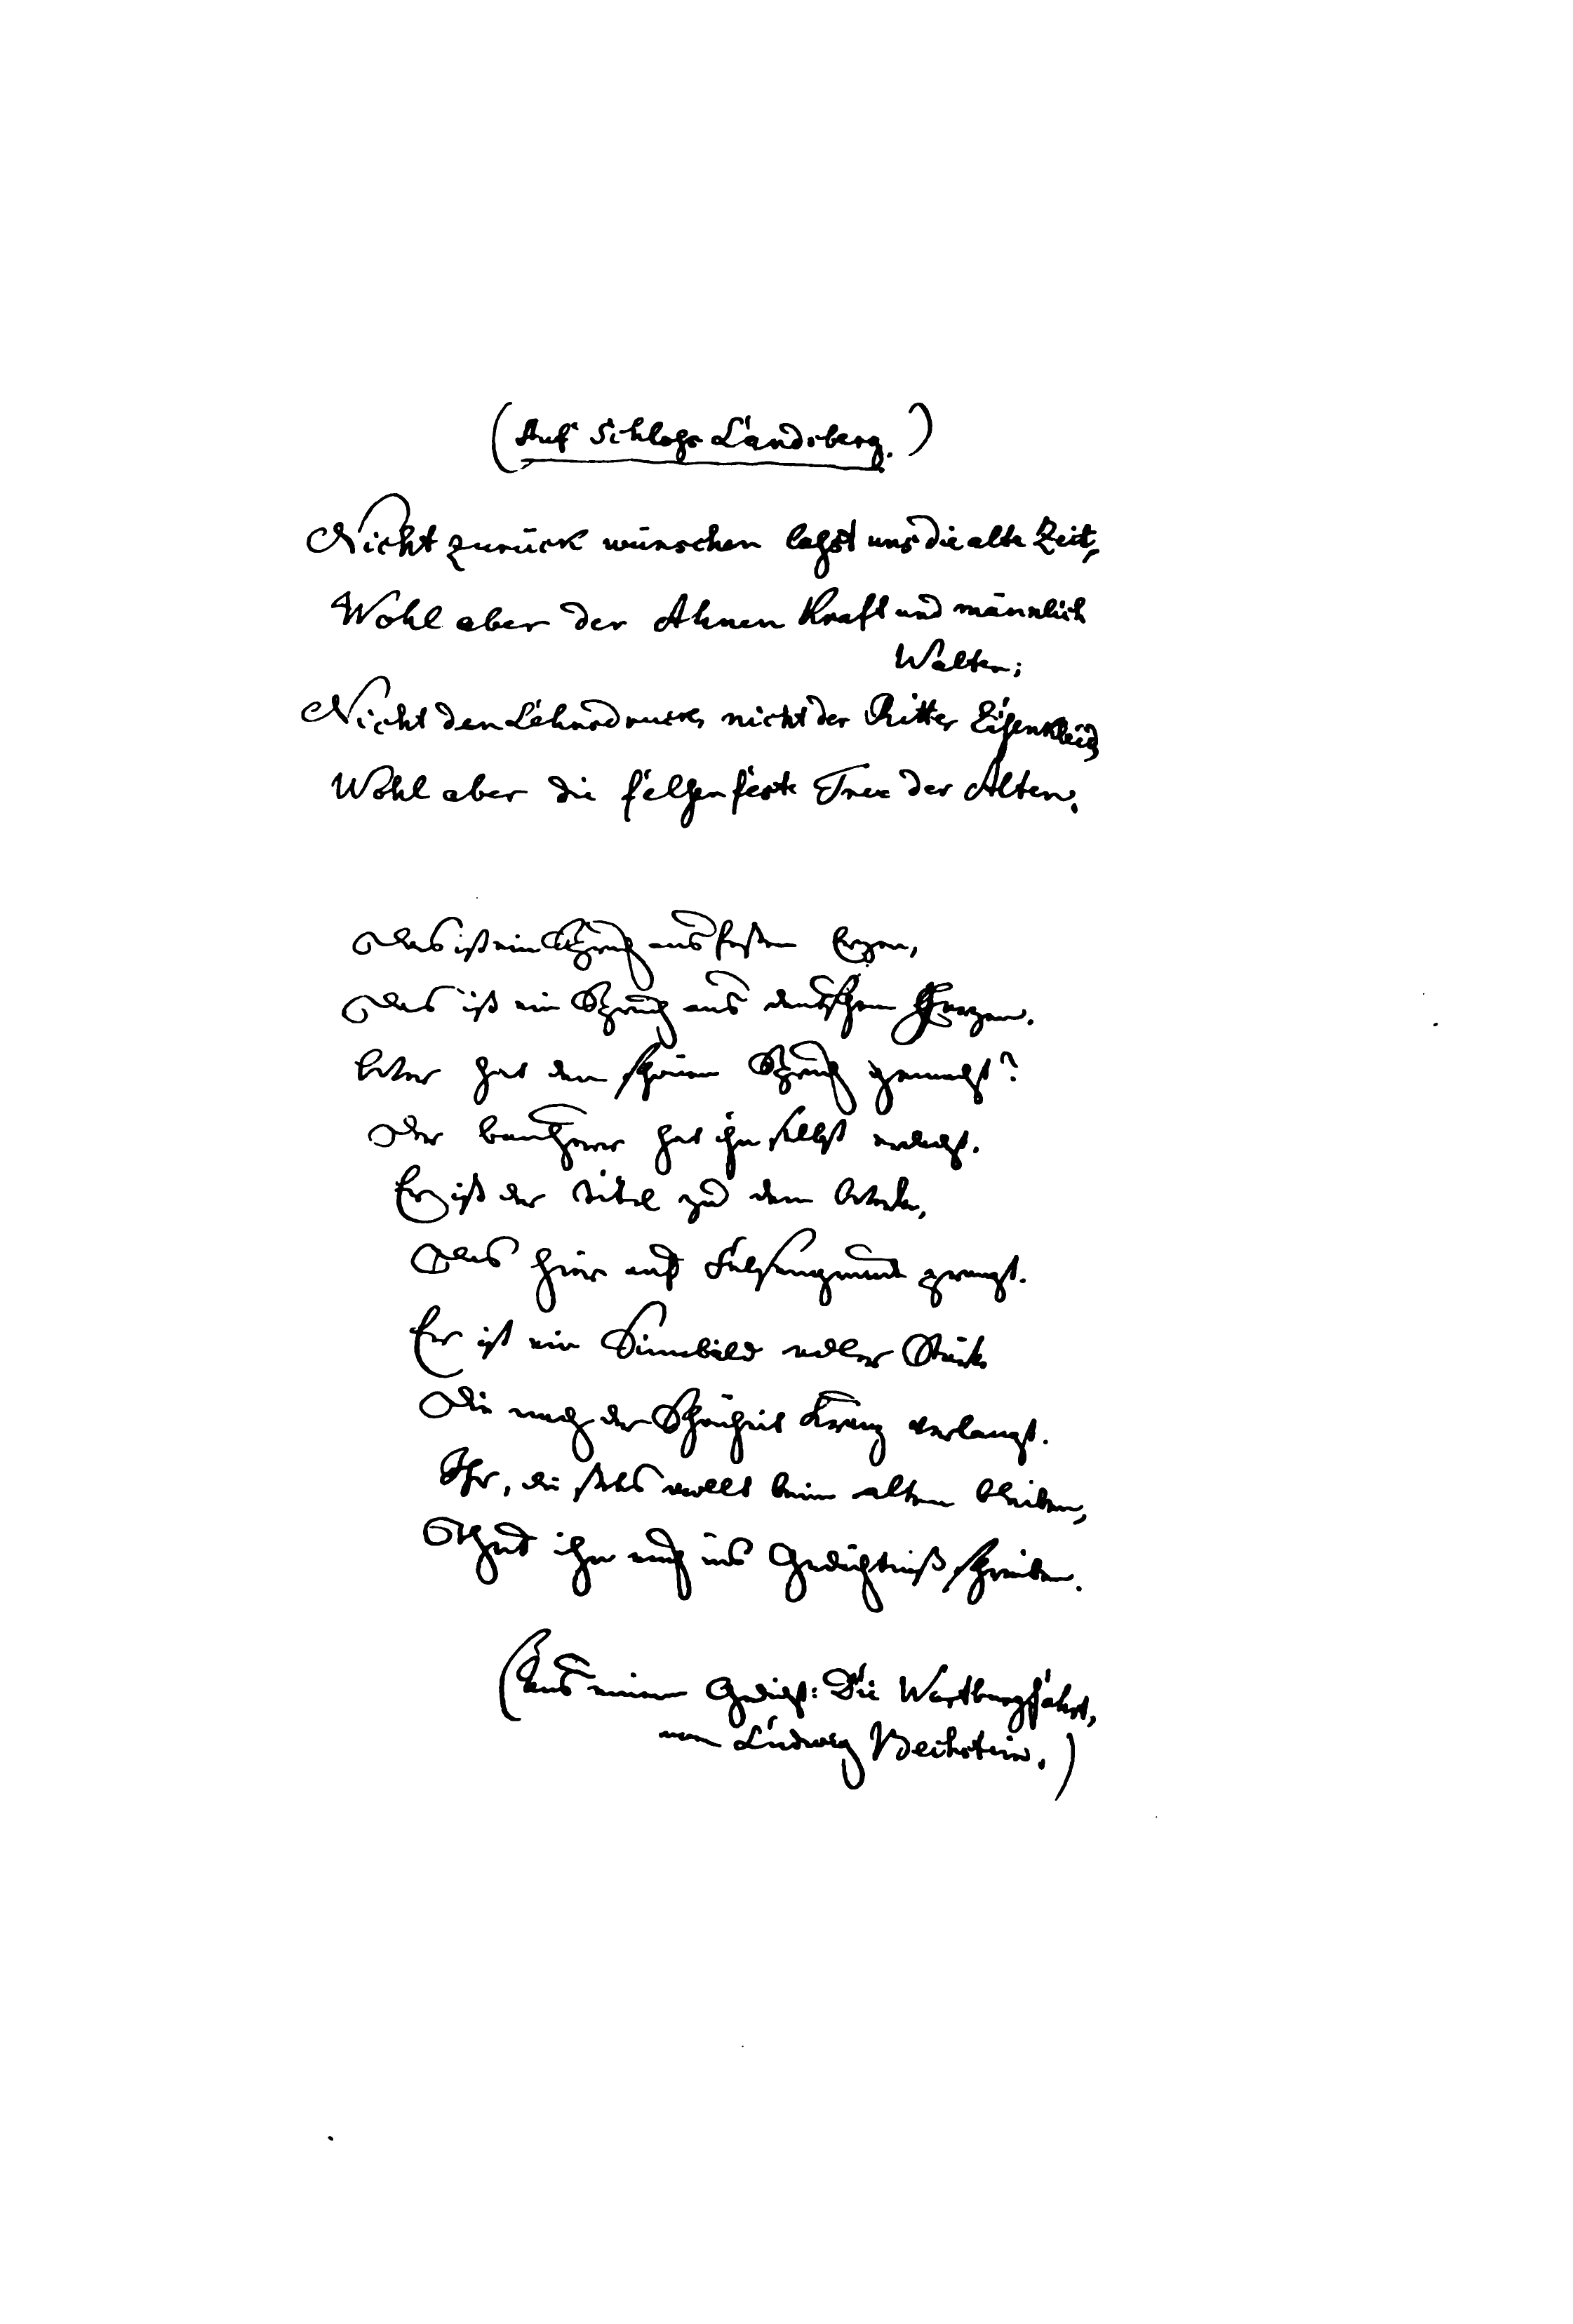 (Auf Schloſs Landsberg.)
Nicht zurück wünschen laſst uns die alte Zeit,
Wohl aber der Ahnen Kraft und männlich
Walten;
Nicht den Lehnsdruck, nicht der Ritter Eiſenkleid
Wohl aber die felſenfeste Treue der Alten.
Das ist ein Spruch aus festen Erzen,
Das ist ein Spruch aus deutschem Herzen.
Wer hat den schönen Spruch gemacht?
Der Bauherr hat ihn selbst erdacht.
Er ist der Titel zu dem Werke,
Das hier auf Felsengrund prangt.
Er ist ein Sinnbild edler Stärke
Die nach der Schönheit Kranz verlangt.
Ihr, die stets wollt beim alten bleiben,
Thut ihn euch ins Gedächtniß schreiben.
(Aus einem Gedicht: Die Wartburgfahrt,
von Ludwig Bechstein.)